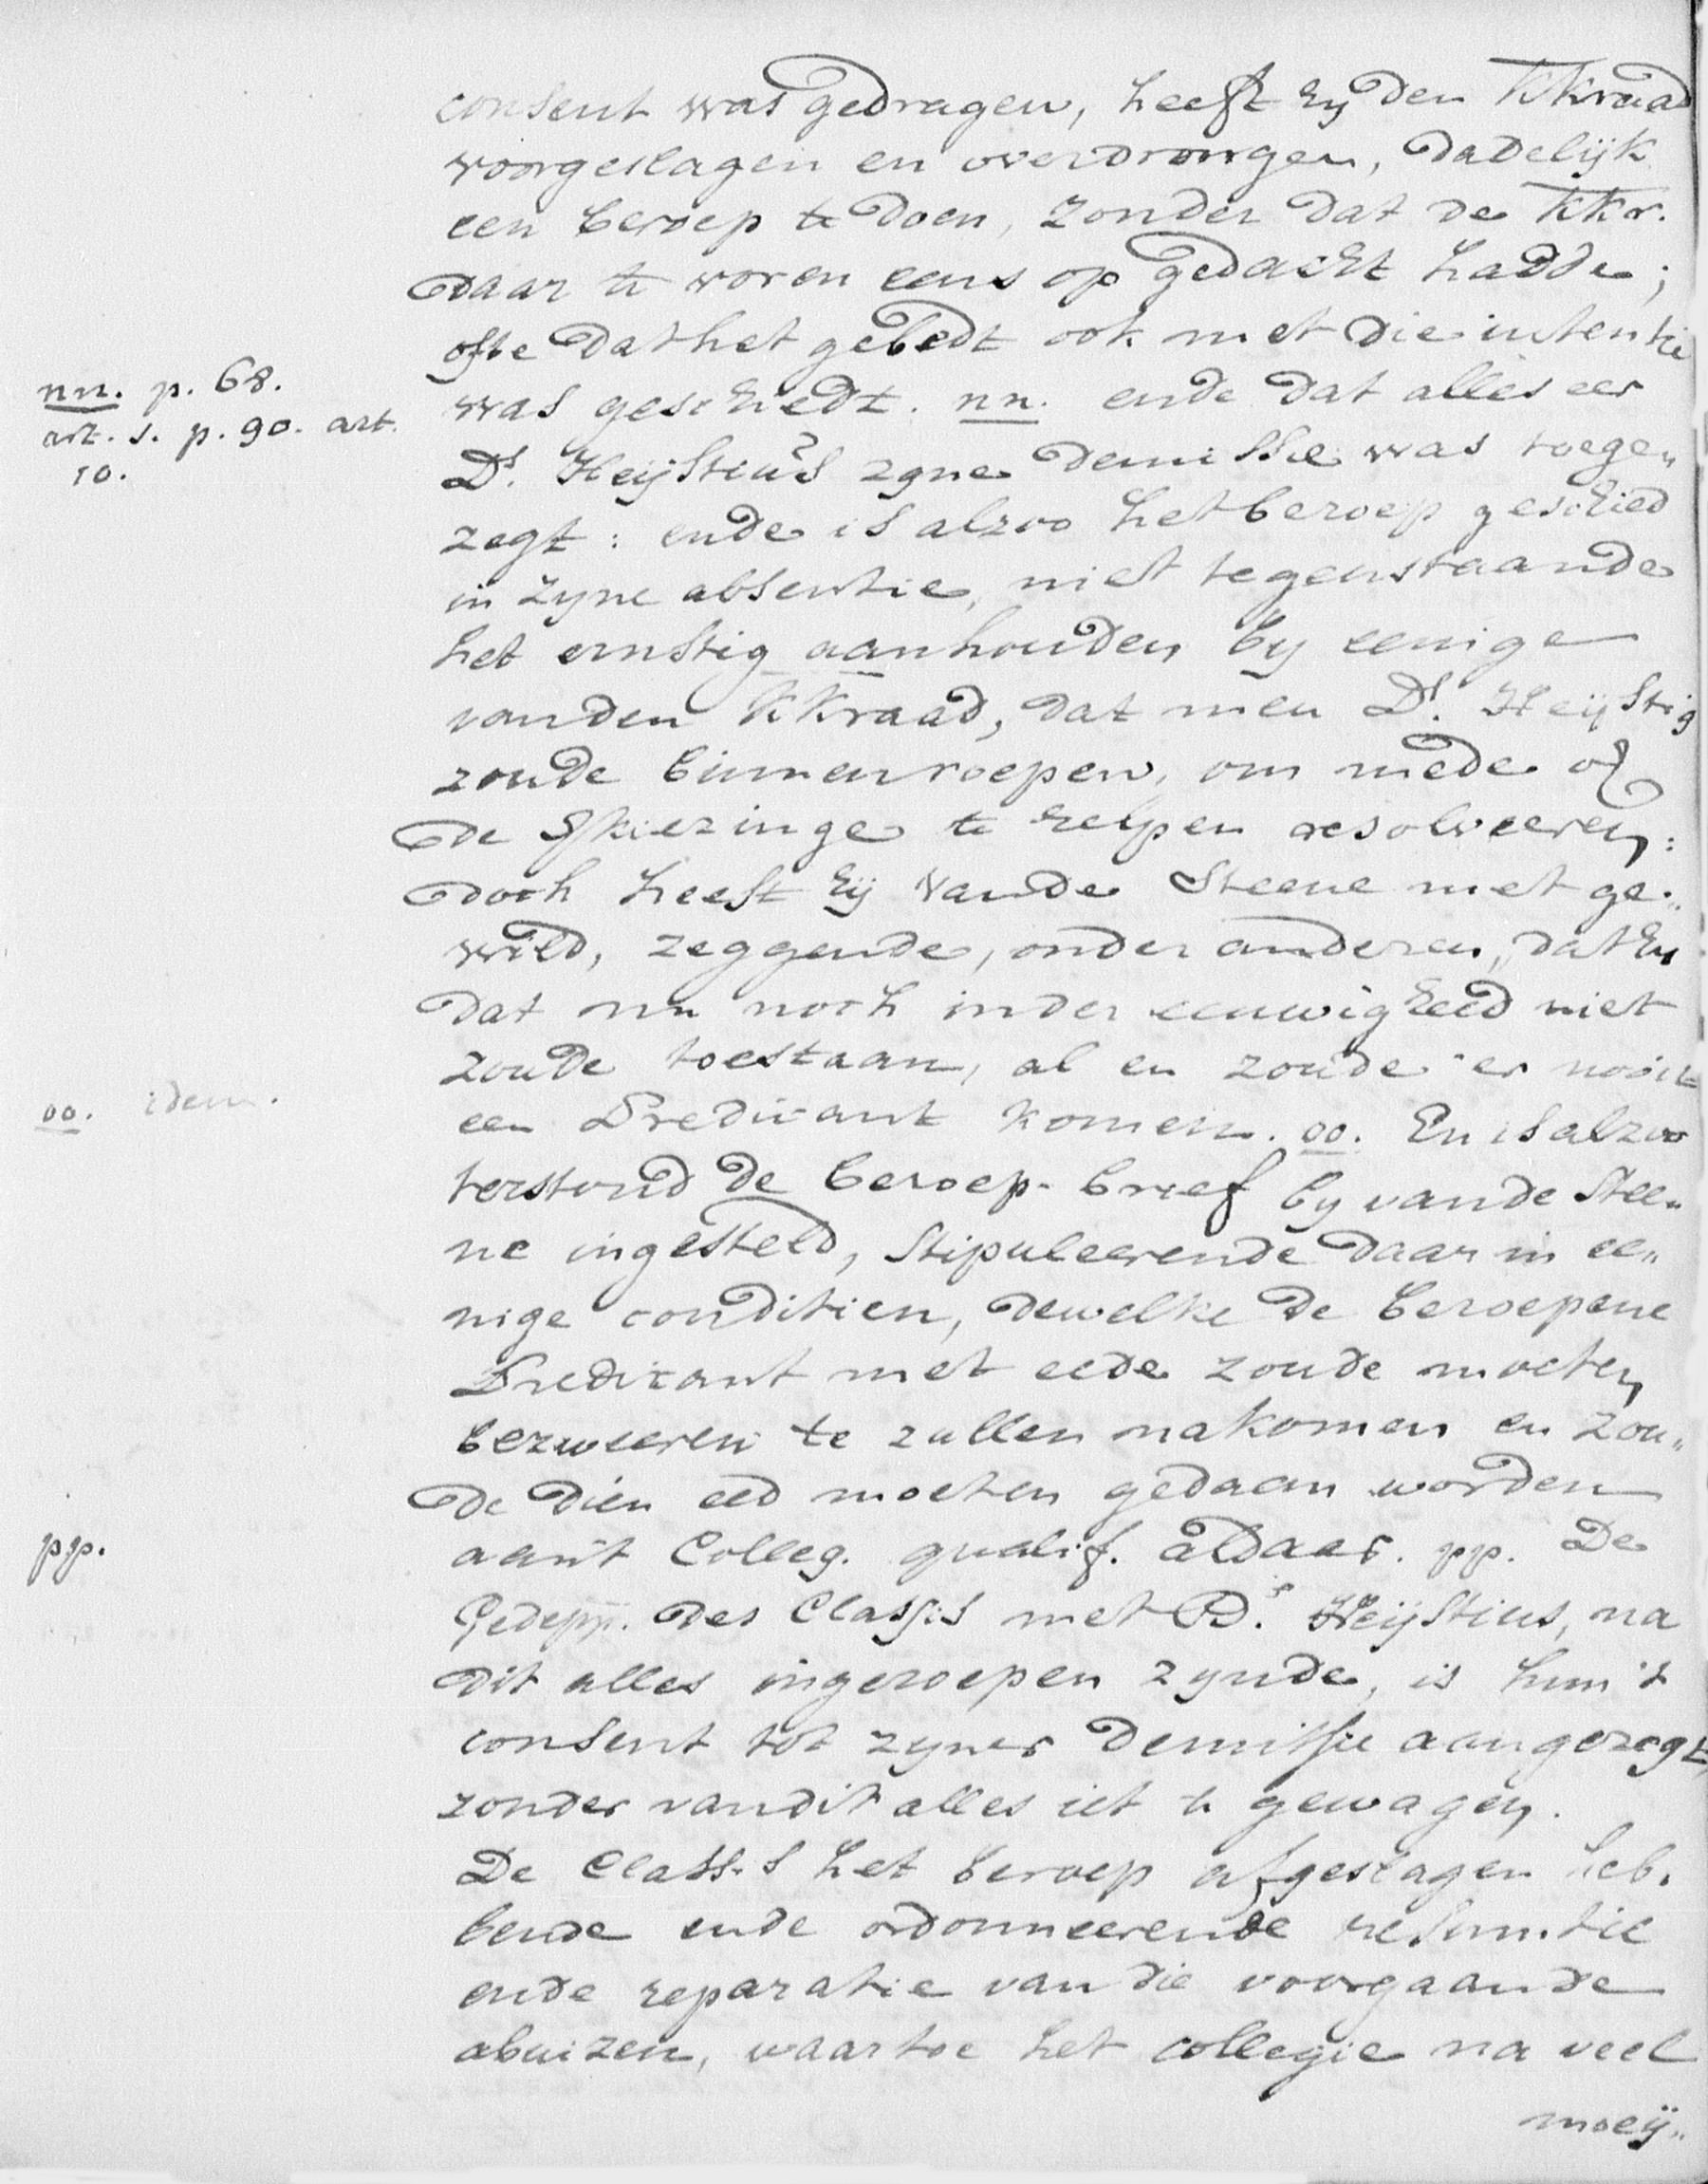 consent was gedragen, heeft hy den KKraad
voorgeslagen en overdrongen, dadelijk
een beroep te doen, zonder dat de KKr.
daar te voren eens op gedacht hadde;
ofte dat het gebedt ook met die intentie
nn. p. 68.
was geschiedt. nn. ende dat alles eer
art. s. p. 90. art.
10.
Ds. Heijstius zyne demissie was toege„
zegt: ende is alzoo het beroep geschied
in zyne absentie, niet tegenstaande
het ernstig aanhouden by eenige
van den KKraad, dat men Ds. Heijstig
zoude binnenroepen, om mede of
de verkiezinge te helpen resolveeren:
doch heeft hij vande Steene niet ge„
wild, zeggende, onder anderen, dat hy
dat nu noch inder eeuwigheid niet
zoude toestaan, al en zoude er nooit
oo. idem.
een Predicant komen. oo. En is alzoo
terstond de beroep-brief by vande Stee„
ne ingesteld, stipuleerende daar in ee„
nige conditien, dewelke de beroepene
Predicant met eede zoude moeten
bezweeren te zullen nakomen en zou„
de dien eed moeten gedaan worden
pp.
aan't Colleg. qualif. aldaar. pp. De
Gedepp. des Classis met Ds. Heijstius, na
dit alles ingeroepen zynde, is hun 't
consent tot zyner demissie aangezegt
zonder van dit alles iet te gewagen.
De Classis het beroep afgeslagen heb„
bende ende ordonneerende resumtie
ende reparatie van die voorgaande
abuizen, waartoe het collegie na veel
moeij„